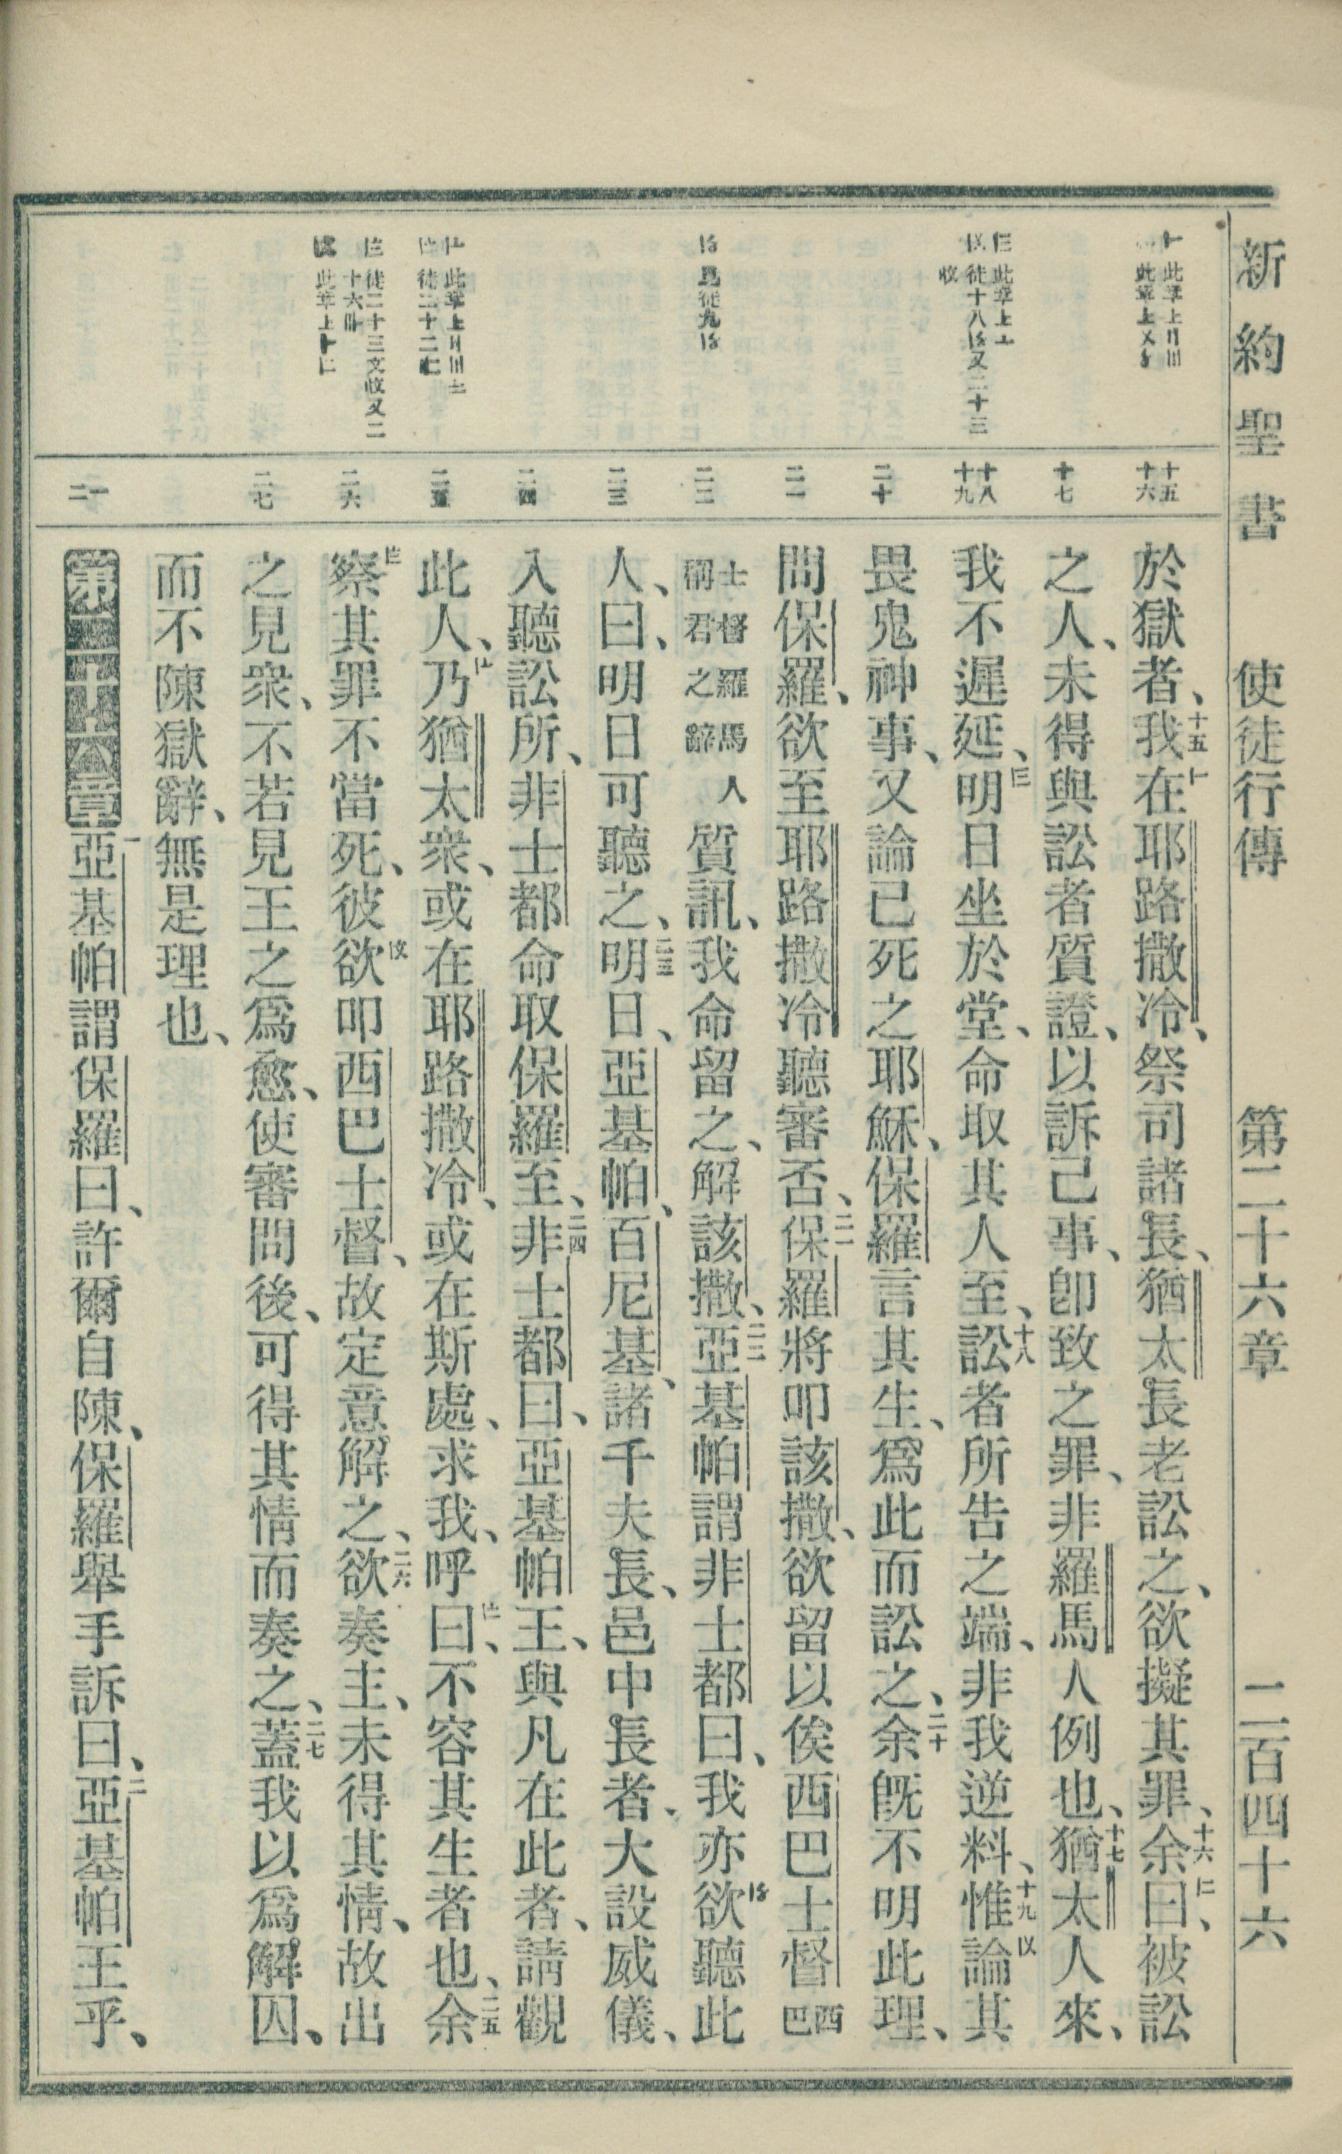 新約聖書 使徒行傳 第二十六章 二百四十六
十五
十六
十七
十八
十九
二十
二一
二二
二三
二四
二五
二六
二七
一
二
於獄者、十五我在耶路撒冷、祭司諸長、猶太長老訟之、欲擬其罪、十六余曰、被訟
之人、未得與訟者質證、以訴己事、卽致之罪、非羅馬人例也、十七猶太人來、
我不遲延、明日坐於堂、命取其人至、十八訟者所告之端、非我逆料、十九惟論其
畏鬼神事、又論已死之耶穌、保羅言其生、爲此而訟之、二十余旣不明此理、
問保羅、欲至耶路撒冷聽審否、二一保羅將叩該撒、欲留以俟西巴士督西巴
士督羅馬人稱君之辭質訊、我命留之、解該撒、二二亞基帕謂非士都曰、我亦欲聽此
人、曰、明日可聽之、二三明日、亞基帕、百尼基、諸千夫長、邑中長者、大設威儀、
入聽訟所、非士都命取保羅至、二四非士都曰、亞基帕王、與凡在此者、請觀
此人、乃猶太衆、或在耶路撒冷、或在斯處、求我、呼曰、不容其生者也、二五余
察其罪不當死、彼欲叩西巴士督、故定意解之、二六欲奏主、未得其情、故出
之見衆、不若見王之爲愈、使審問後、可得其情而奏之、二七蓋我以爲解囚、
而不陳獄辭、無是理也、
第二十六章 一亞基帕謂保羅曰、許爾自陳、保羅舉手訴曰、二亞基帕王乎、